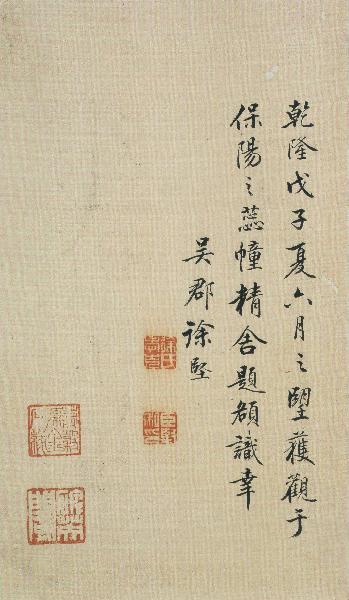 乾隆戊子夏六月之朢獲觀于
保陽之蕊幢精舍題額識幸
吴郡徐堅